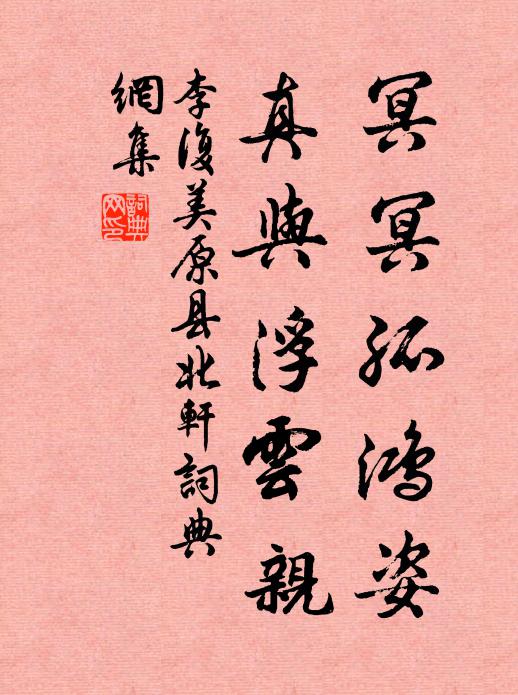 冥冥孤鸿姿
真與浮雲親
李復美原县北軒詞典
網集
詞典網印